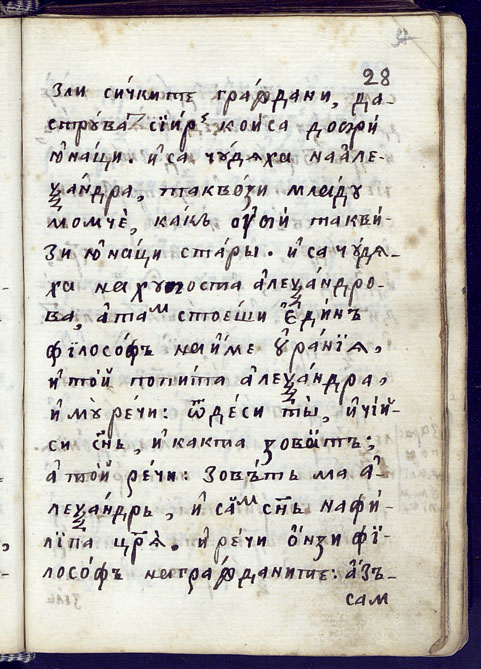 28
зли си́чките гра́ждани, да
стрꙋ́ва сїир кои́са добри́
ю҆на́ци. и҆са чꙋ́дѧха на але-
ѯа́ндра, такво́зи мла́дꙋ
момчѐ, ка́къ ᲂу҆би́ такви́-
зи ю҆на́ци ста́ры. и҆са чꙋ́дѧ-
ха на хꙋбоста а҆леѯа́ндро-
ва, а҆там стоеши є҆ди́нъ
фїлосо́фъ на и҆́ме ᲂу҆ра́нїѧ,
и҆ то́й попи́та а҆леѯа́ндра,
и҆ мꙋ̀ речи: ѿде́си ты̀, и҆ чі́й-
си сн҃ъ, и҆ какта зова́тъ;
а҆ то́й ре́чи: зова́тъ ма а҆-
леѯа́ндръ, и҆ са́м сн҃ъ на фи-
лїпа цр҃ѧ̀. и҆ речи о҆́нзи фї-
лосо́фъ на гра́жданите: а҆́зъ-
сам